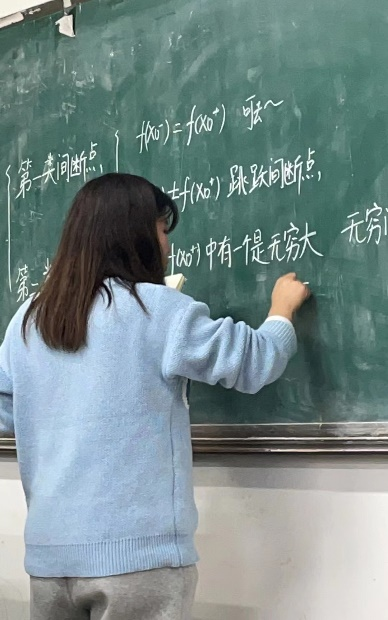 第一类间断点
f(x₀⁻)=f(x₀⁺) 可去~
≠f(x₀⁺) 跳跃间断点,
第二类
f(x₀⁺)中有一个是无穷大 无穷